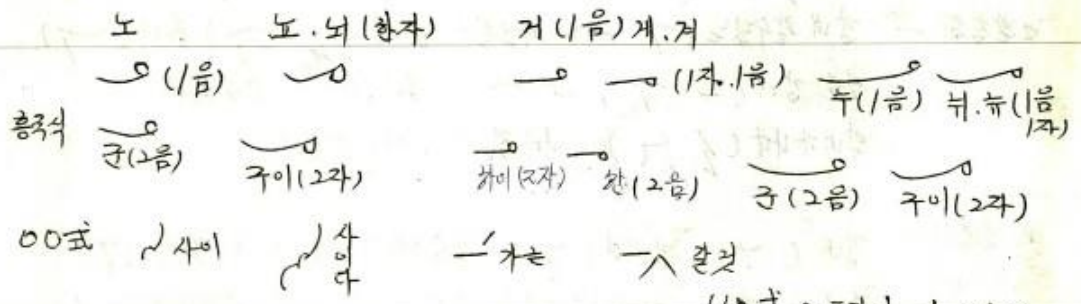 노 뇨.뇌(한자) 거(1음)게.겨
(1음) (1자.1음) 누(1음) 뉘.뉴(1음 1자)
흥국식 군(2음) 구이(2자) (2자) (2음) 군(2음) 구이(2자)
○○式 사이 사이다 가는 갈것